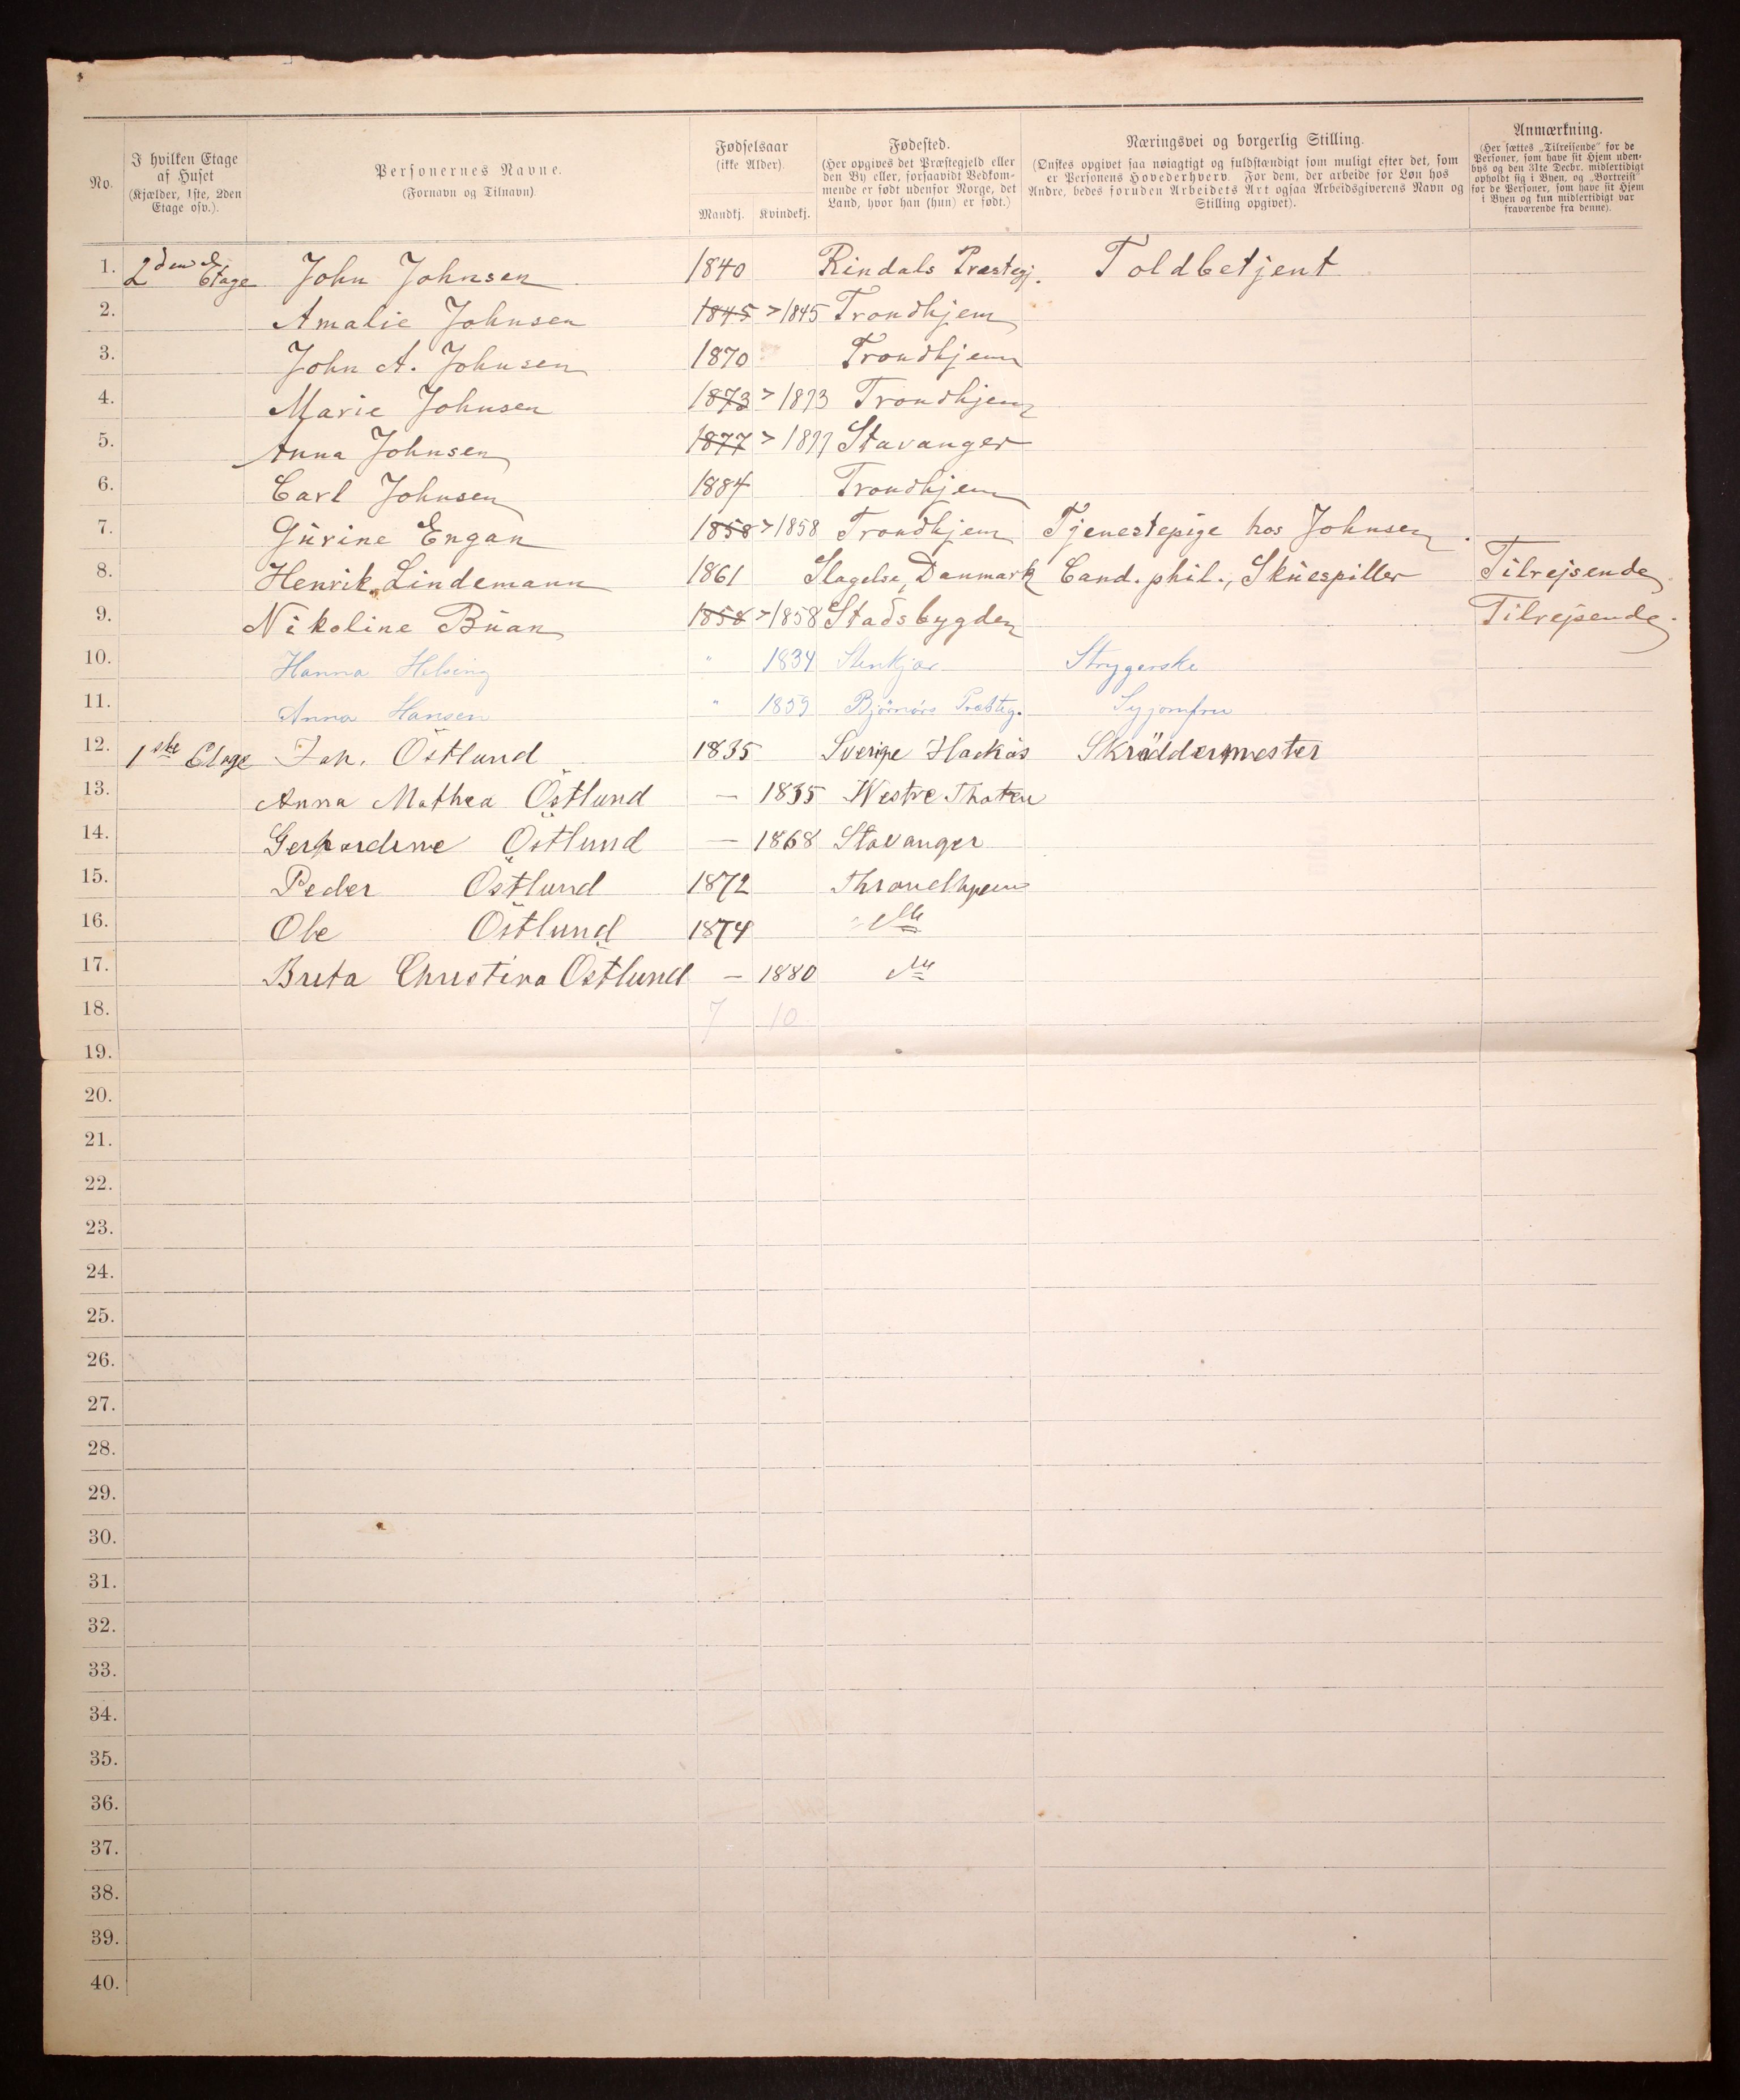 No.
I hvilken Etage
af Huset
(Kjælder, 1ste, 2den
Etage osv.).
Personernes Navne.
(Fornavn og Tilnavn).
Fødselsaar
(ikke Alder).
Mandkj. Kvindekj.
Fødested.
(Her opgives det Præstegjeld eller
den By eller, forsaavidt Vedkom-
mende er født udenfor Norge, det
Land, hvor han (hun) er født.)
Næringsvei og borgerlig Stilling.
(Ønskes opgivet saa nøiagtigt og fuldstændigt som muligt efter det, som
er Personens Hovederhverv. For dem, der arbeide for Løn hos
Andre, bedes foruden Arbeidets Art ogsaa Arbeidsgiverens Navn og
Stilling opgivet).
Anmærkning.
(Her sættes „Tilreisende" for de
Personer, som have sit Hjem uden-
bys og den 31te Decbr. midlertidigt
opholdt sig i Byen, og „Bortreist"
for de Personer, som have sit Hjem
i Byen og kun midlertidigt var
fraværende fra denne).
1. 2den Etage John Johnsen 1840 Rindals Præstegj. Toldbetjent
2. Amalie Johnsen 1845 > 1845 Trondhjem
3. John A. Johnsen 1870 Trondhjem
4. Marie Johnsen 1873 > 1873 Trondhjem
5. Anna Johnsen 1877 > 1877 Stavanger
6. Carl Johnsen 1884 Trondhjem
7. Gurine Engan 1858 > 1858 Trondhjem Tjenestepige hos Johnsen.
8. Henrik Lindemann 1861 Slagelse, Danmark Cand. phil., Skuespiller Tilrejsende.
9. Nikoline Buan 1858 > 1858 Stadsbygden Tilrejsende.
10. Hanna Helsing " 1834 Stenkjær Strygerske
11. Anna Hansen " 1859 Bjørnørs Præsteg. Syjomfru
12. 1ste Etage Joh. Östlund 1835 Sverige Hackås Skräddermester
13. Anna Mathea Östlund — 1835 Westre Thoten
14. Gerhardine Östlund — 1868 Stavanger
15. Peder Östlund 1872 Throndhjem
16. Ole Östlund 1874 do
17. Brita Christina Östlund — 1880 do
18. 7 10
19.
20.
21.
22.
23.
24.
25.
26.
27.
28.
29.
30.
31.
32.
33.
34.
35.
36.
37.
38.
39.
40.